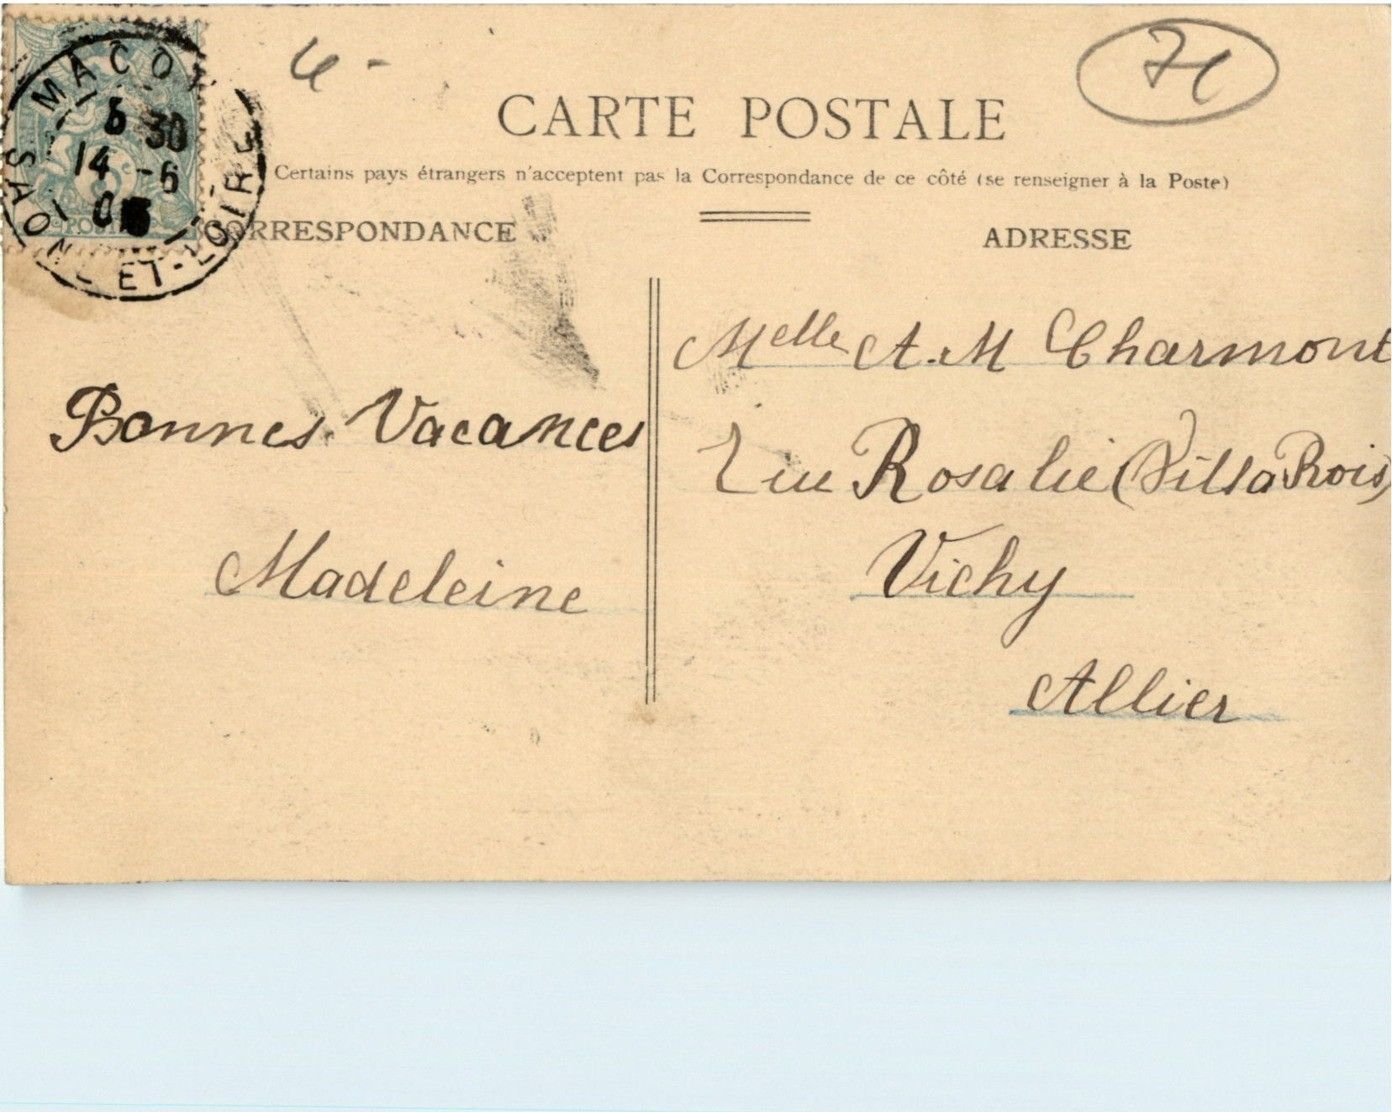 4 -
71
CARTE POSTALE
Certains pays étrangers n'acceptent pas la Correspondance de ce côté (se renseigner à la Poste)
CORRESPONDANCE
ADRESSE
MACON
5 30
14 -6
SAONE-ET-LOIRE
Bonnes Vacances
Madeleine
Melle A. M Charmont
rue Rosalie (Villa Rois)
Vichy
Allier